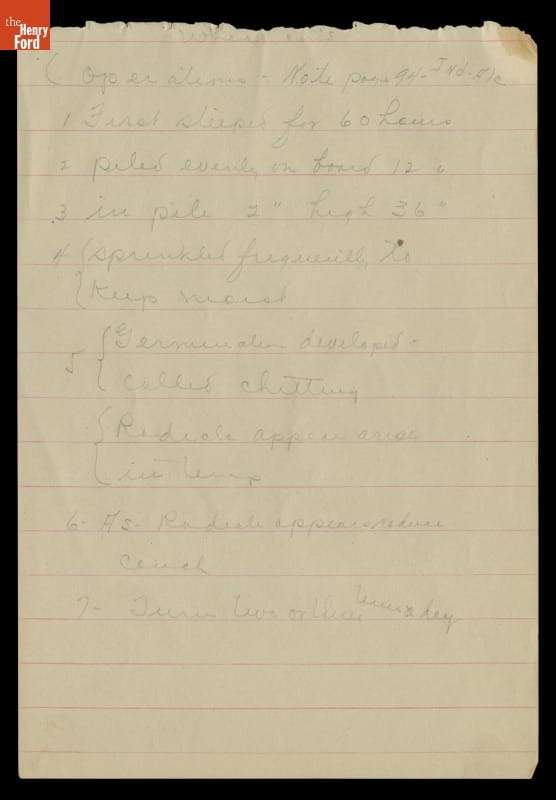 the
Henry
Ford
( Operations - Note page 94 -
1 First steeped for 60 hours
2 piled evenly on board 12 "
3 in pile 2 " high 36 "
4 { sprinkled frequently to
Keep moist
5 { Germination developed -
called chitting
{ Radicle appear
in temp
6 - As - Radicle appears reduce
couch
7 - Turn two or three times a day